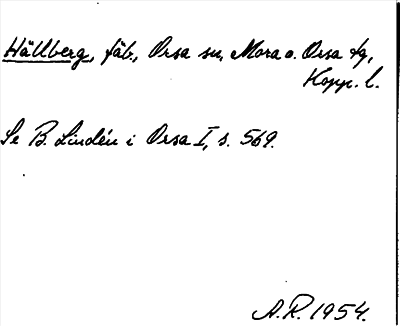 Hällberg, fäb., Orsa sn, Mora o. Orsa tg,
Kopp. l.
Se B. Lindén i Orsa I, s. 569.
A.R. 1954.